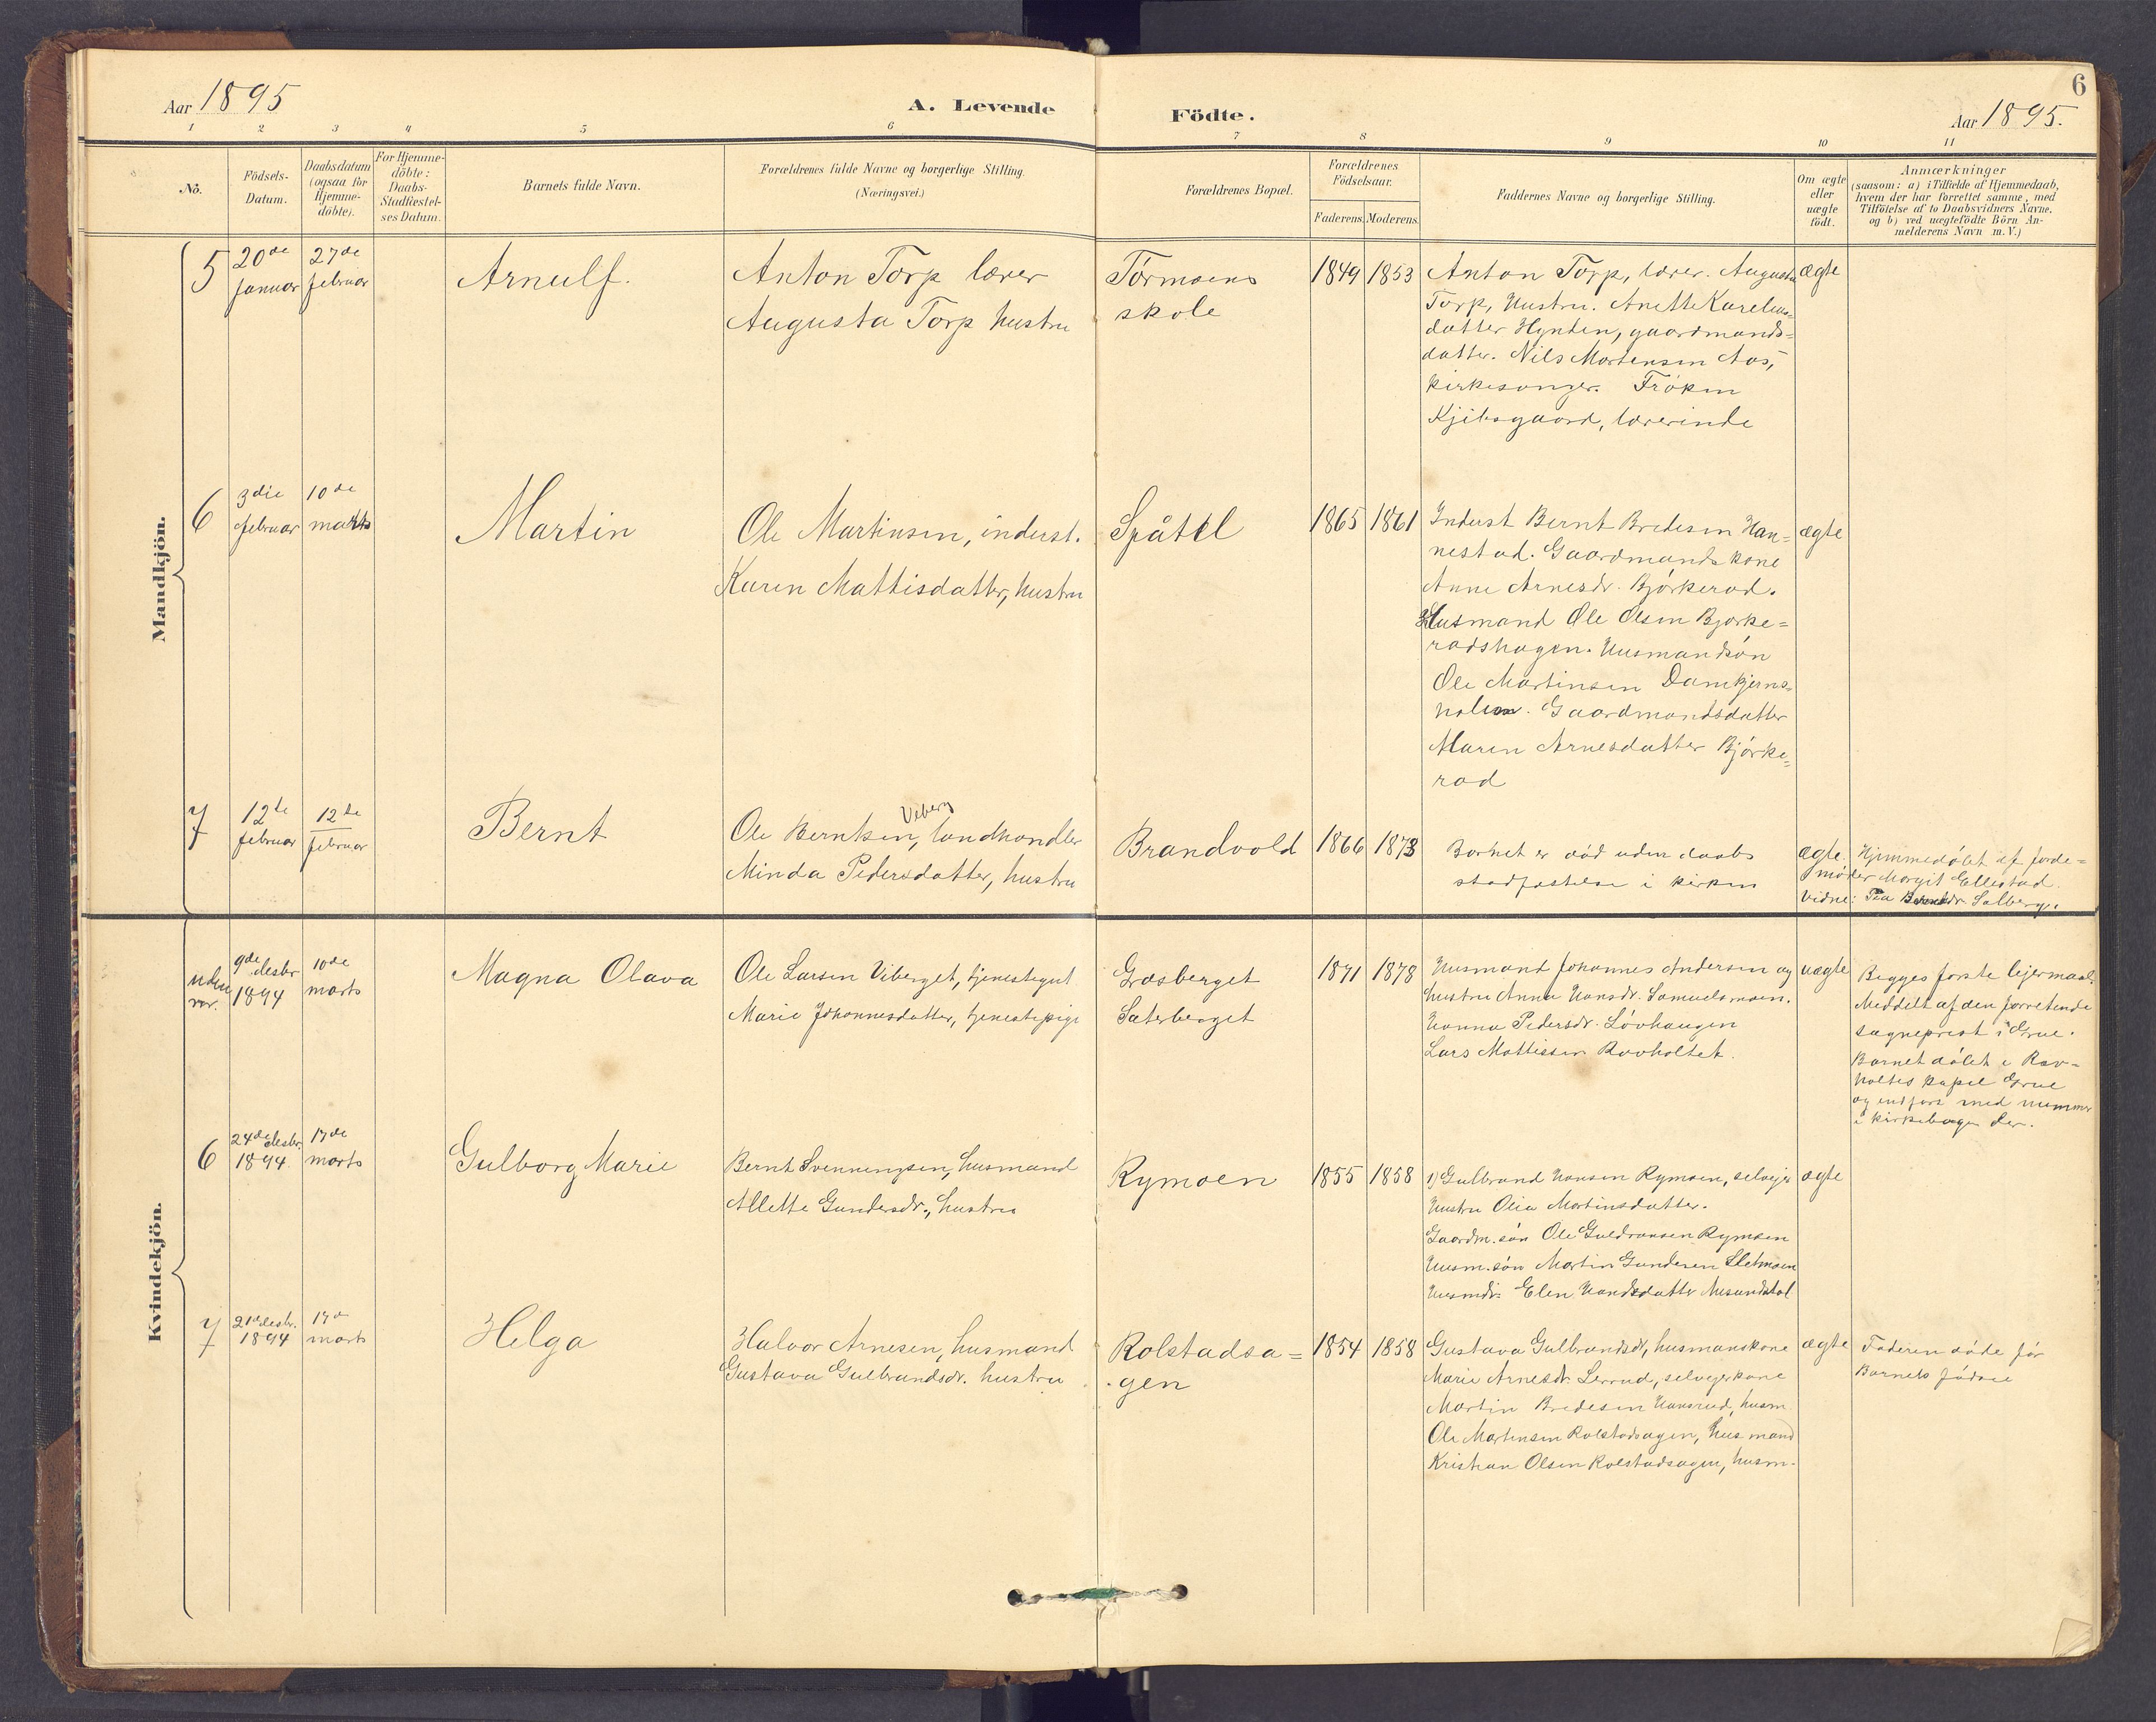 6
Aar 1895
A. Levende Födte.
Aar 1895.
1 2 3 4 5 6 7 8 9 10 11
No.
Födsels-
Datum.
Daabsdatum
(ogsaa for
Hjemme-
döbte).
For Hjemme-
döbte:
Daabs-
Stadfæstel-
ses Datum.
Barnets fulde Navn.
Forældrenes fulde Navne og borgerlige Stilling.
(Næringsvei.)
Forældrenes Bopæl.
Forældrenes
Födselsaar.
Faderens. Moderens.
Faddernes Navne og borgerlige Stilling.
Om ægte
eller
uægte
födt.
Anmærkninger
(saasom: a) i Tilfælde af Hjemmedaab,
hvem der har forrettet samme, med
Tilföielse af to Daabsvidners Navne,
og b) ved uægtefödte Börn An-
melderens Navn m.V.)
Mandkjön.
5
20de
januar
27de
februar
Arnulf.
Anton Torp lærer
Augusta Torp hustru
Tórmoens
skole
1849
1853
Anton Torp, lærer. Augusta
Torp, Hustru. Anette Karelius-
datter Hynden, gaardmands-
datter. Nils Mortensen Aas,
kirkesanger. Frøken
Kjilsgaard, lærerinde
ægte
6
3die
februar
10de
marts
Martin
Ole Martinsen, inderst.
Karen Mattisdatter, hustru
Spåtel
1865
1861
Inderst Bernt Bredesen Han=
nestad. Gaardmandskone
Anne Arnesdr. Bjørkerad.
Husmand Ole Olsen Bjorke=
radshagen. Husmandsøn
Ole Martinsen Damkjerns-
holen. Gaardmandsdatter
Maren Arnesdatter Bjórke=
rad
ægte
7
12te
februar
12te
februar
Bernt
Viberg
Ole Berntsen, landhandler
Minda Pedersdatter, hustru
Brandvold
1866
1873
Barnet er død uden daabs
stadfæstelse i kirken
ægte.
Hjemmedøbt af jorde=
móder Margit Ellestad.
Vidne: Solberg.
Kvindekjön.
uden
nr.
9de desbr
1894
10de
marts
Magna Olava
Ole Larsen Viberget, tjenestegut
Marie Johannesdatter, tjenestepige
Græsberget
Sæterberget
1871
1878
Husmand Johannes Andersen og
hustru Anna Hansdr. Samuelsmoen.
Hanna Pedersdr. Lóvhaugen
Lars Mattissen Rovholtet.
uægte
Begges første lejermaal.
Meddelt af den forrettende
sogneprest i Grue.
Barnet døbt i Rev=
holtes kapel Grue
og indført med nummer
i kirkebogen der.
6
24de desbr.
1894.
17de
marts
Gulborg Marie
Bernt Svenningsen, husmand
Allette Gundersdr., hustru
Rymoen
1855
1858
1) Gulbrand Hansen Rymoen, selvejer
hustru Olia Martinsdatter.
Gaardm. søn Ole Guldransen Rymoen
Husm. søn Martin Gundersen Sletmoen
Husmdr. Elen Hansdatter
ægte
7
21de desbr.
1894
17de
marts
Helga
Halvor Arnesen, husmand
Gustava Gulbrandsdr. hustru
Rolstadsa=
gen
1854
1858
Gustava Gulbrandsdr, husmanskone
Marie Arnesdr. Lerrud, selvejerkone
Martin Bredesen Hansrud, husm.
Ole Martinsen Rolstadsagen, husmand
Kristian Olsen Rolstadsagen, husm.
ægte
Faderen døde før
Barnets fødsel